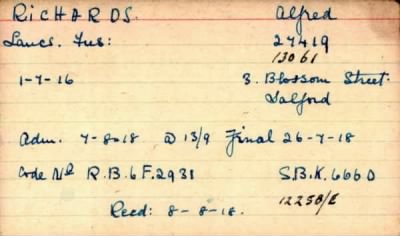 RICHARDS. Alfred
Lancs. Fus: 27419
13061
1-7-16 3. Blossom Street.
Salford
Adm. 7-8-18 @ 13/9 Final 26-7-18
Code No R.B.6F.2931 S.B.K.6660
12258/E
Recd: 8-8-18.